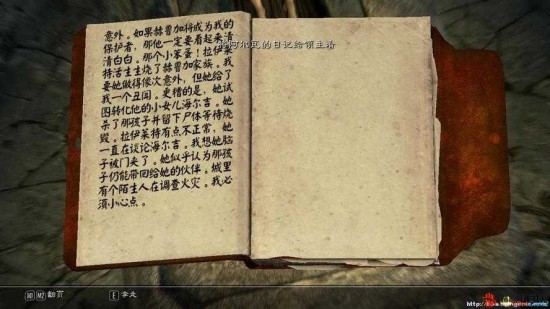 意外。如果赫曾加将成为我的
保护者，那他一定要看起来清
清白白。那个小笨蛋！拉伊莱
特活生生烧了赫曾加家族。我
要她做得像次意外，但她给了
我一个丑闻。更糟的是，她试
图转化他的小女儿海尔吉。她
杀了那孩子并留下尸体等待烧
毁。拉伊莱特有点不正常，她
一直在谈论海尔吉。我想她脑
子被门夹了。她似乎认为那孩
子仍能带回给她的伙伴。城里
有个陌生人在调查火灾。我必
须小心点。
阿尔瓦的日记给领主看
M2 翻页
E 拿走